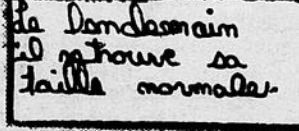 Le Londemain
il retrouve sa
taille normale.